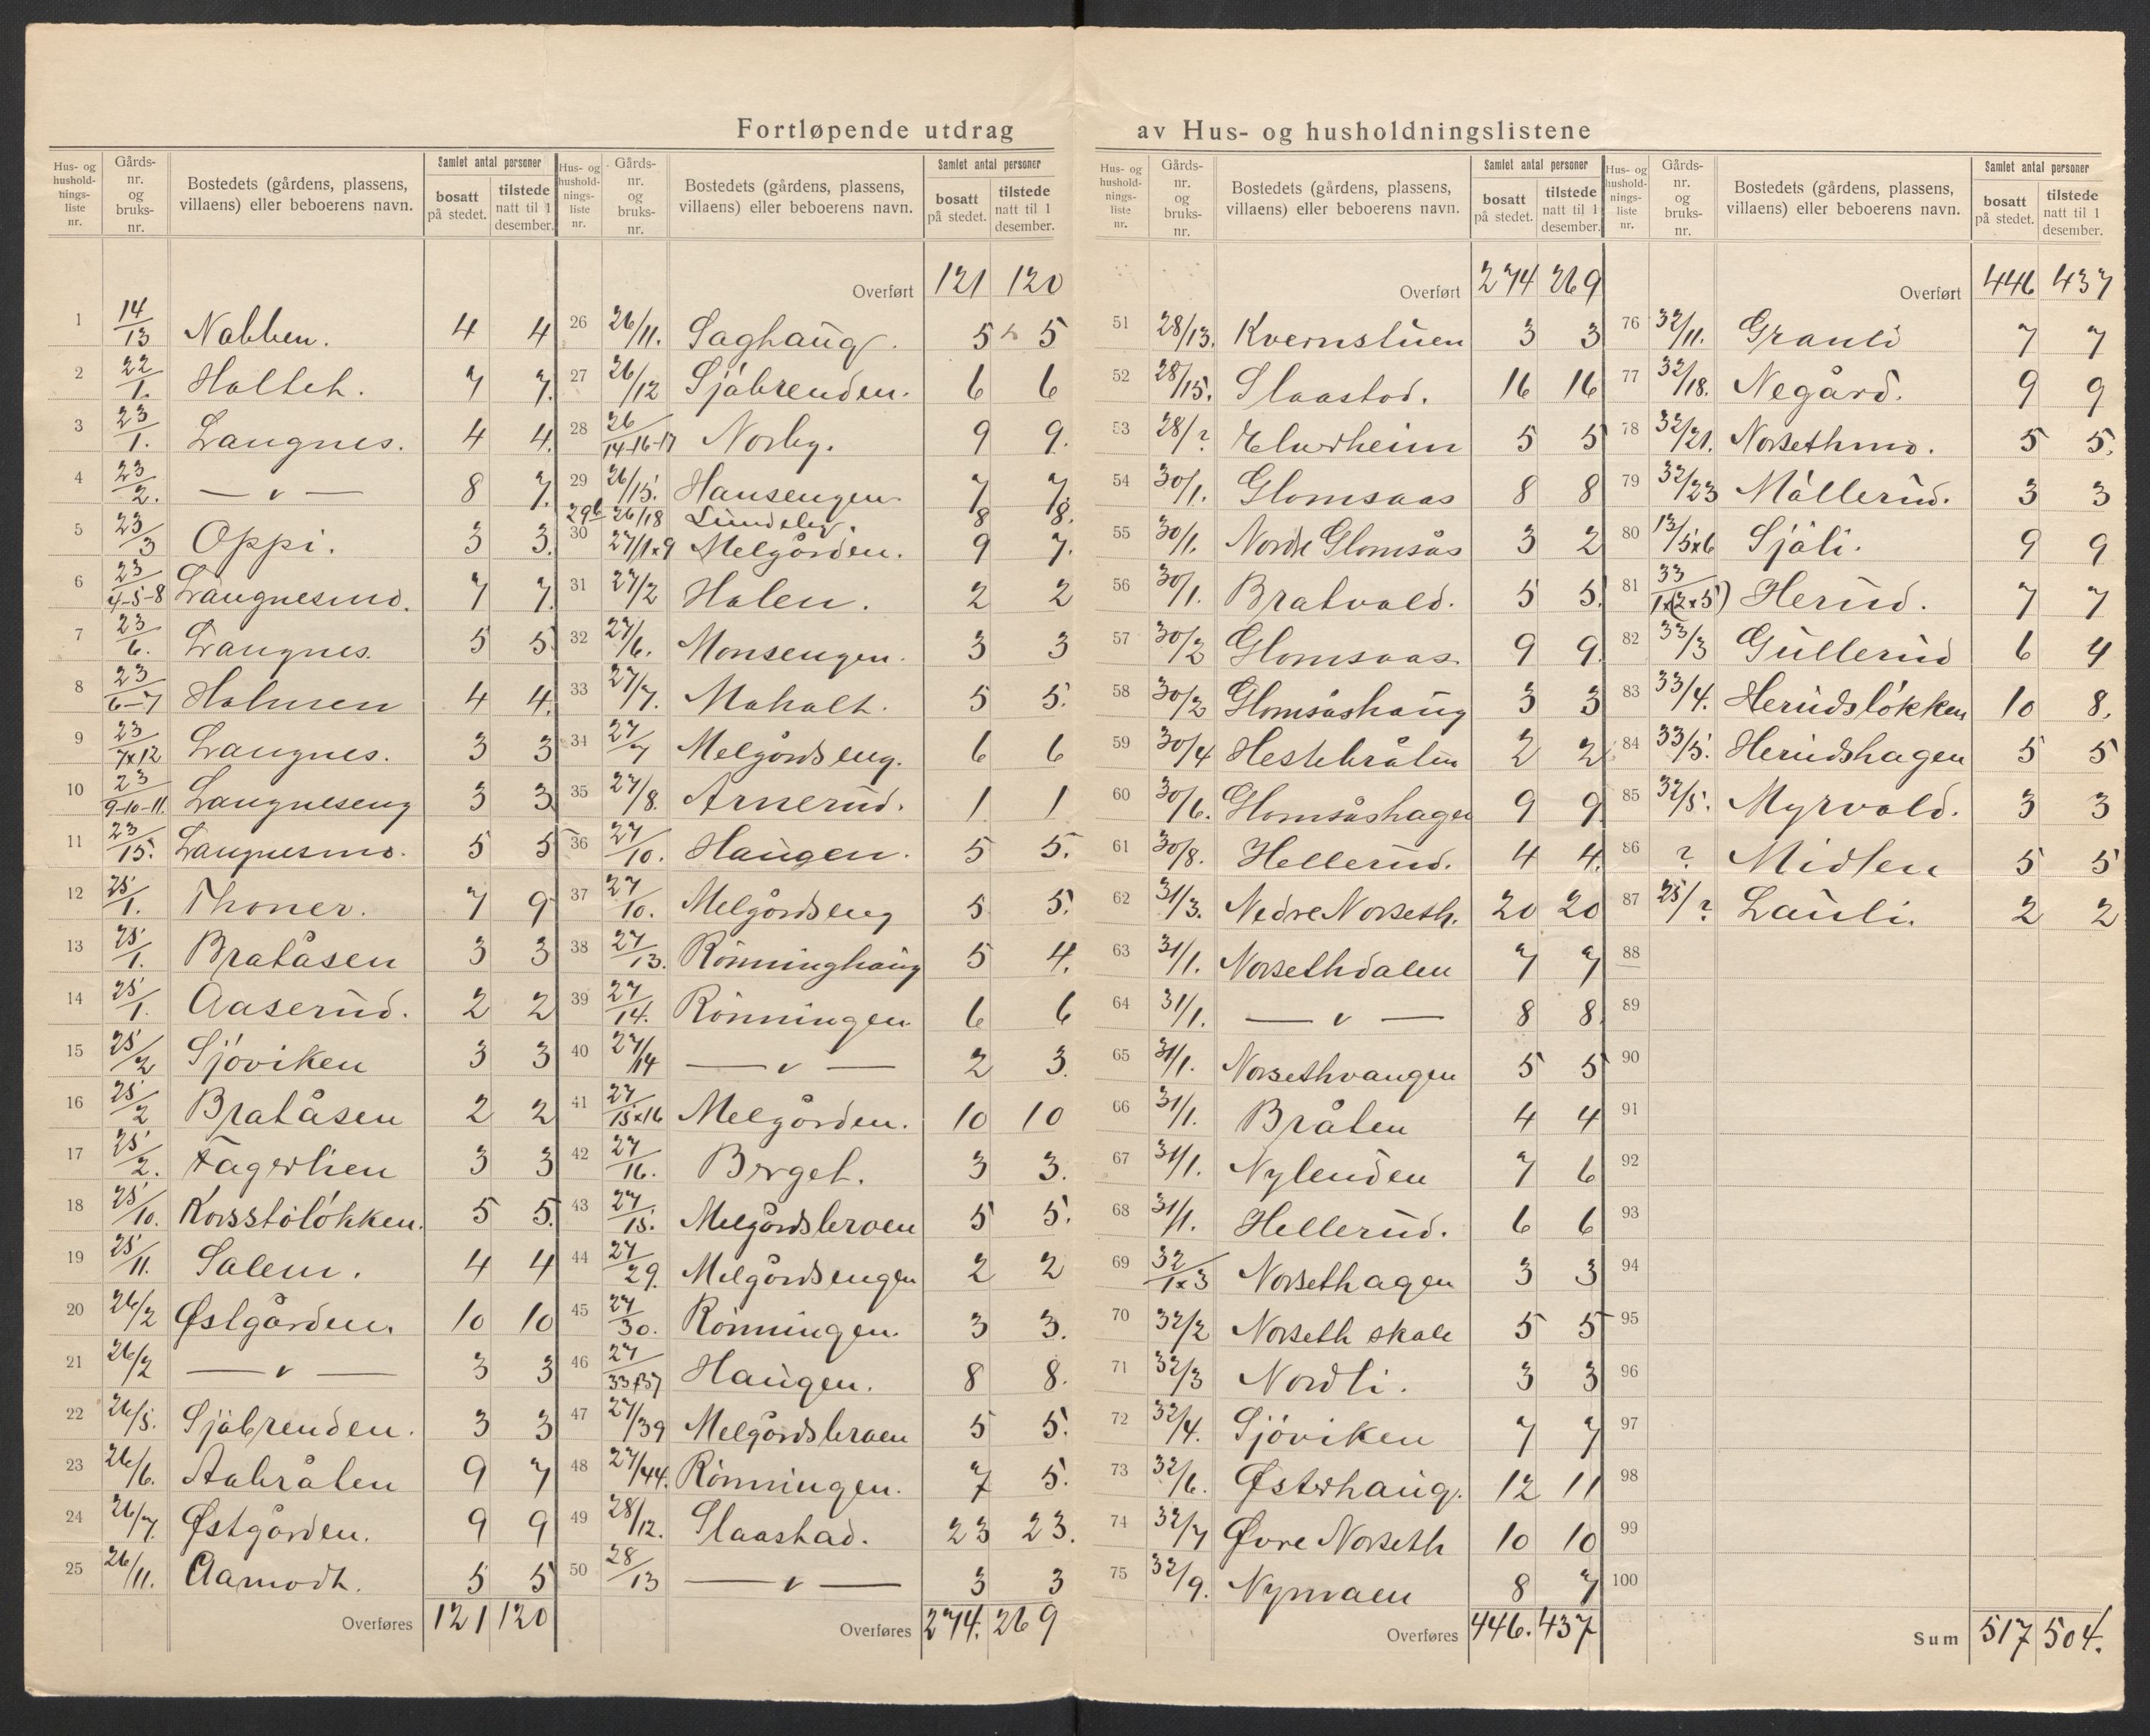 Fortløpende utdrag av Hus- og husholdningslistene
Hus- og hushold-nings-liste nr. | Gårds-nr. og bruks-nr. | Bostedets (gårdens, plassens, villaens) eller beboerens navn. | Samlet antal personer | bosatt på stedet. | tilstede natt til 1 desember.
1 14/13 Nabben. 4 4
2 22/1. Holteh. 7 7.
3 23/1. Langnes. 4 4.
4 23/2. — " — 8 7.
5 23/3 Oppi. 3 3.
6 23/4-5-8 Langnesmo. 7 7.
7 23/6. Langnes. 5 5
8 23/6-7 Holmen 4 4.
9 23/7x12 Langnes. 3 3
10 23/9-10-11. Langneseng 3 3
11 23/15. Langnesmo. 5 5
12 25/1. Thoner. 7 9
13 25/1. Bratåsen 3 3
14 25/1. Aaserud. 2 2
15 25/2 Sjöviken 3 3
16 25/2 Bratåsen 2 2
17 25/2. Fagerlien 3 3
18 25/10. Korsstölökken. 5 5.
19 25/11. Salem. 4 4
20 26/2 Østgården. 10 10
21 26/2 — " — 3 3
22 26/5. Sjöbrenden. 3 3
23 26/6. Aabråten 9 7
24 26/7. Østgården. 9 9
25 26/11. Aamodt. 5 5
Overføres 121 120
Hus- og hushold-nings-liste nr. | Gårds-nr. og bruks-nr. | Bostedets (gårdens, plassens, villaens) eller beboerens navn. | Samlet antal personer | bosatt på stedet. | tilstede natt til 1 desember.
Overført 121 120
26 26/11. Saghaug. 5 5
27 26/12 Sjöbrenden. 6 6
28 26/14-16-17 Norby. 9 9.
29 26/15. Hansengen. 7 7.
29b 26/18 Lundeby. 8 8.
30 27/1x9 Melgården. 9 7.
31 27/2 Holen. 2 2
32 27/6. Monsengen. 3 3
33 27/7. Moholt. 5 5.
34 27/7 Melgårdseng. 6 6
35 27/8. Arnerud. 1 1
36 27/10. Haugen. 5 5.
37 27/10. Melgårdseng 5 5.
38 27/13. Rönninghaug 5 4.
39 27/14. Rönningen 6 6
40 27/14 — " — 2 3.
41 27/15x16 Melgården. 10 10
42 27/16. Berget. 3 3.
43 27/18. Melgårdsbroen 5 5.
44 27/29. Melgårdsengen 2 2
45 27/30. Rönningen. 3 3.
46 27/33x37 Haugen. 8 8.
47 27/39 Melgårdsbroen 5 5.
48 27/44. Rönningen. 7 5.
49 28/12. Slaastad. 23 23.
50 28/13 — " — 3 3
Overføres 274. 269
Hus- og hushold-nings-liste nr. | Gårds-nr. og bruks-nr. | Bostedets (gårdens, plassens, villaens) eller beboerens navn. | Samlet antal personer | bosatt på stedet. | tilstede natt til 1 desember.
Overført 274 269
51 28/13. Kvernstuen 3 3
52 28/15. Slaastad. 16 16
53 28/? Elverheim 5 5
54 30/1. Glomsaas 8 8
55 30/1. Nordre Glomsås 3 2
56 30/1. Bratvold. 5 5.
57 30/2 Glomsaas. 9 9.
58 30/2 Glomsåshaug 3 3
59 30/4 Hestebråten 2 2
60 30/6. Glomsåshagen 9 9
61 30/8. Hellerud. 4 4.
62 31/3. Nedre Norseth. 20 20
63 31/1. Norsethdalen 7 7
64 31/1. — " — 8 8.
65 31/1. Norsethvangen 5 5
66 31/1. Bråten 4 4
67 31/1. Nylenden 7 6
68 31/1. Hellerud. 6 6
69 32/1x3 Norsethagen 3 3
70 32/2 Norseth skole 5 5
71 32/3 Nordli. 3 3
72 32/4. Sjöviken 7 7
73 32/6. Østerhaug. 12 11
74 32/7 Øvre Norseth 10 10
75 32/9. Nymoen 8 7
Overføres 446. 437
Hus- og hushold-nings-liste nr. | Gårds-nr. og bruks-nr. | Bostedets (gårdens, plassens, villaens) eller beboerens navn. | Samlet antal personer | bosatt på stedet. | tilstede natt til 1 desember.
Overført 446 437
76 32/11. Granli 7 7
77 32/18. Negård. 9 9
78 32/21. Norsethmo. 5 5.
79 32/23 Möllerud. 3 3
80 13/5x6 Sjöli. 9 9
81 33/1x(2x5) Herud. 7 7
82 33/3 Gullerud 6 4
83 33/4. Herudslökken 10 8.
84 33/5. Herudshagen 5 5
85 32/5. Myrvold. 3 3
86 ? Midlen 5 5
87 25/? Lauli. 2 2
88
89
90
91
92
93
94
95
96
97
98
99
100
Sum 517 504.